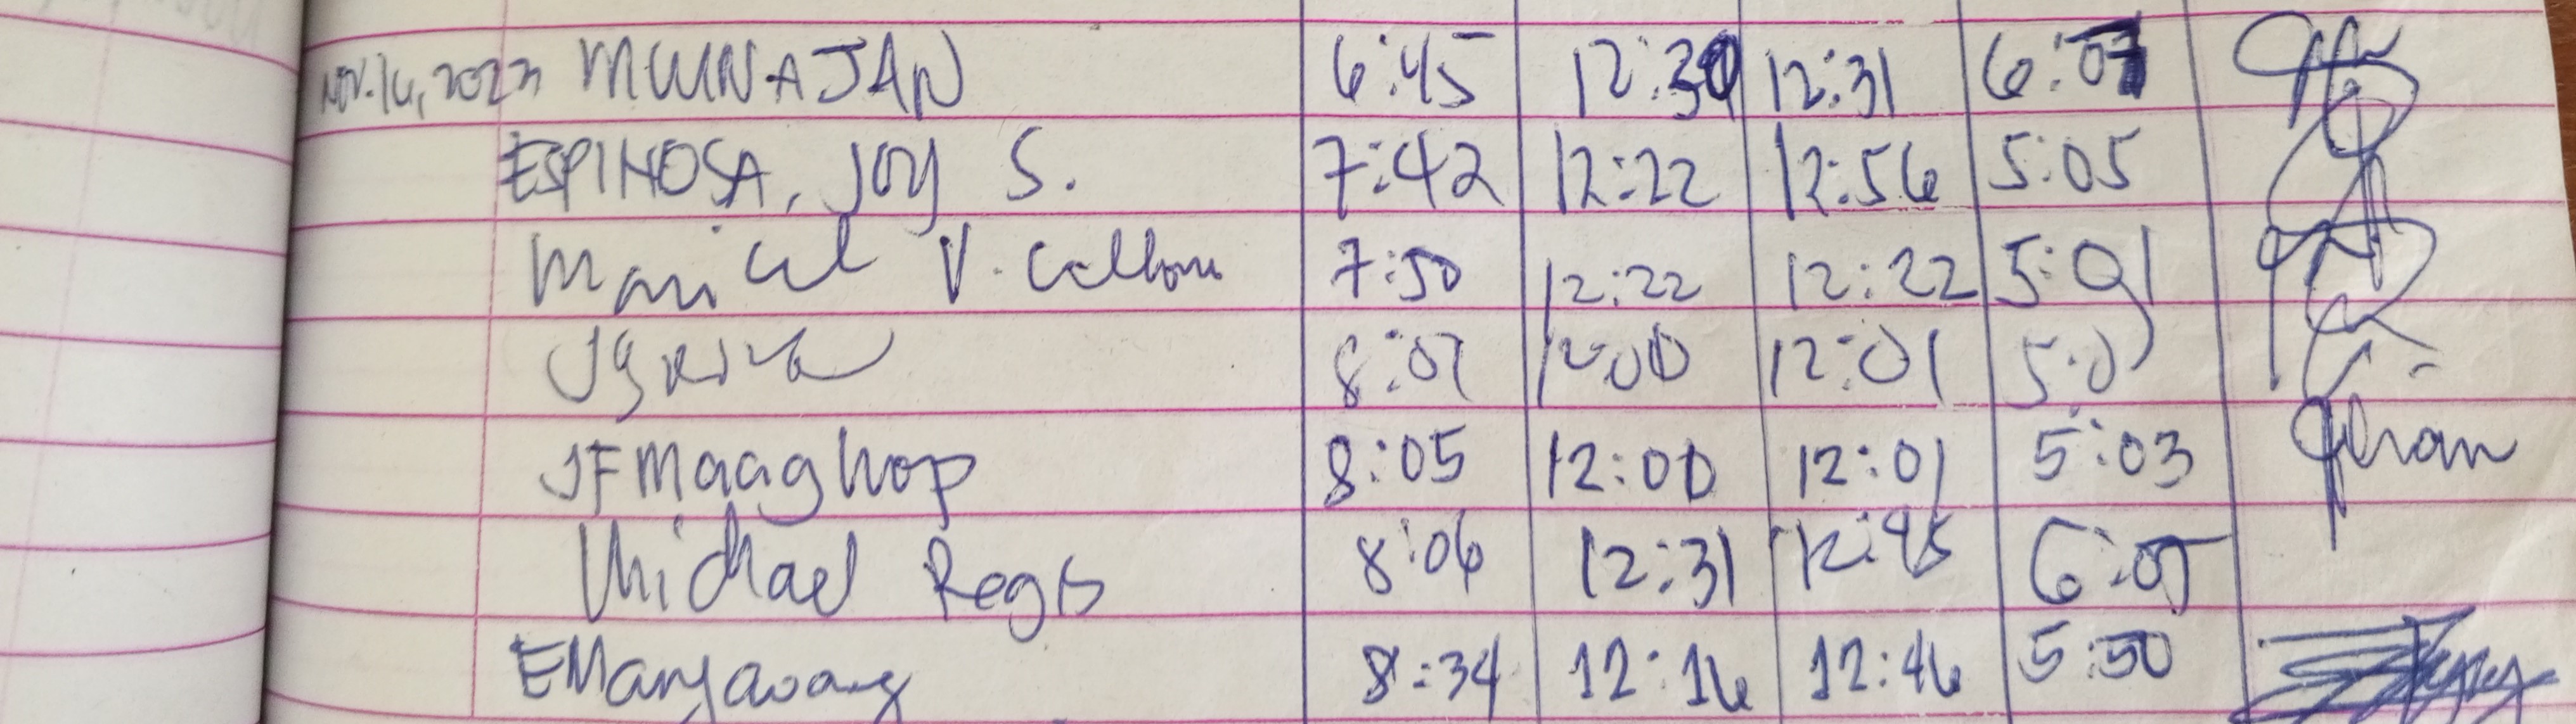 Nov. 14, 2023 MUNAJAN 6:45 12:30 12:31 6:07
ESPINOSA, JOY S. 7:42 12:22 12:56 5:05
Maricel V. 7:50 12:22 12:22 5:01
8:07 12:00 12:01 5:01
JFMaaghop 8:05 12:00 12:01 5:03
Michael Regis 8:06 12:31 12:45 6:05
8:34 12:16 12:46 5:50